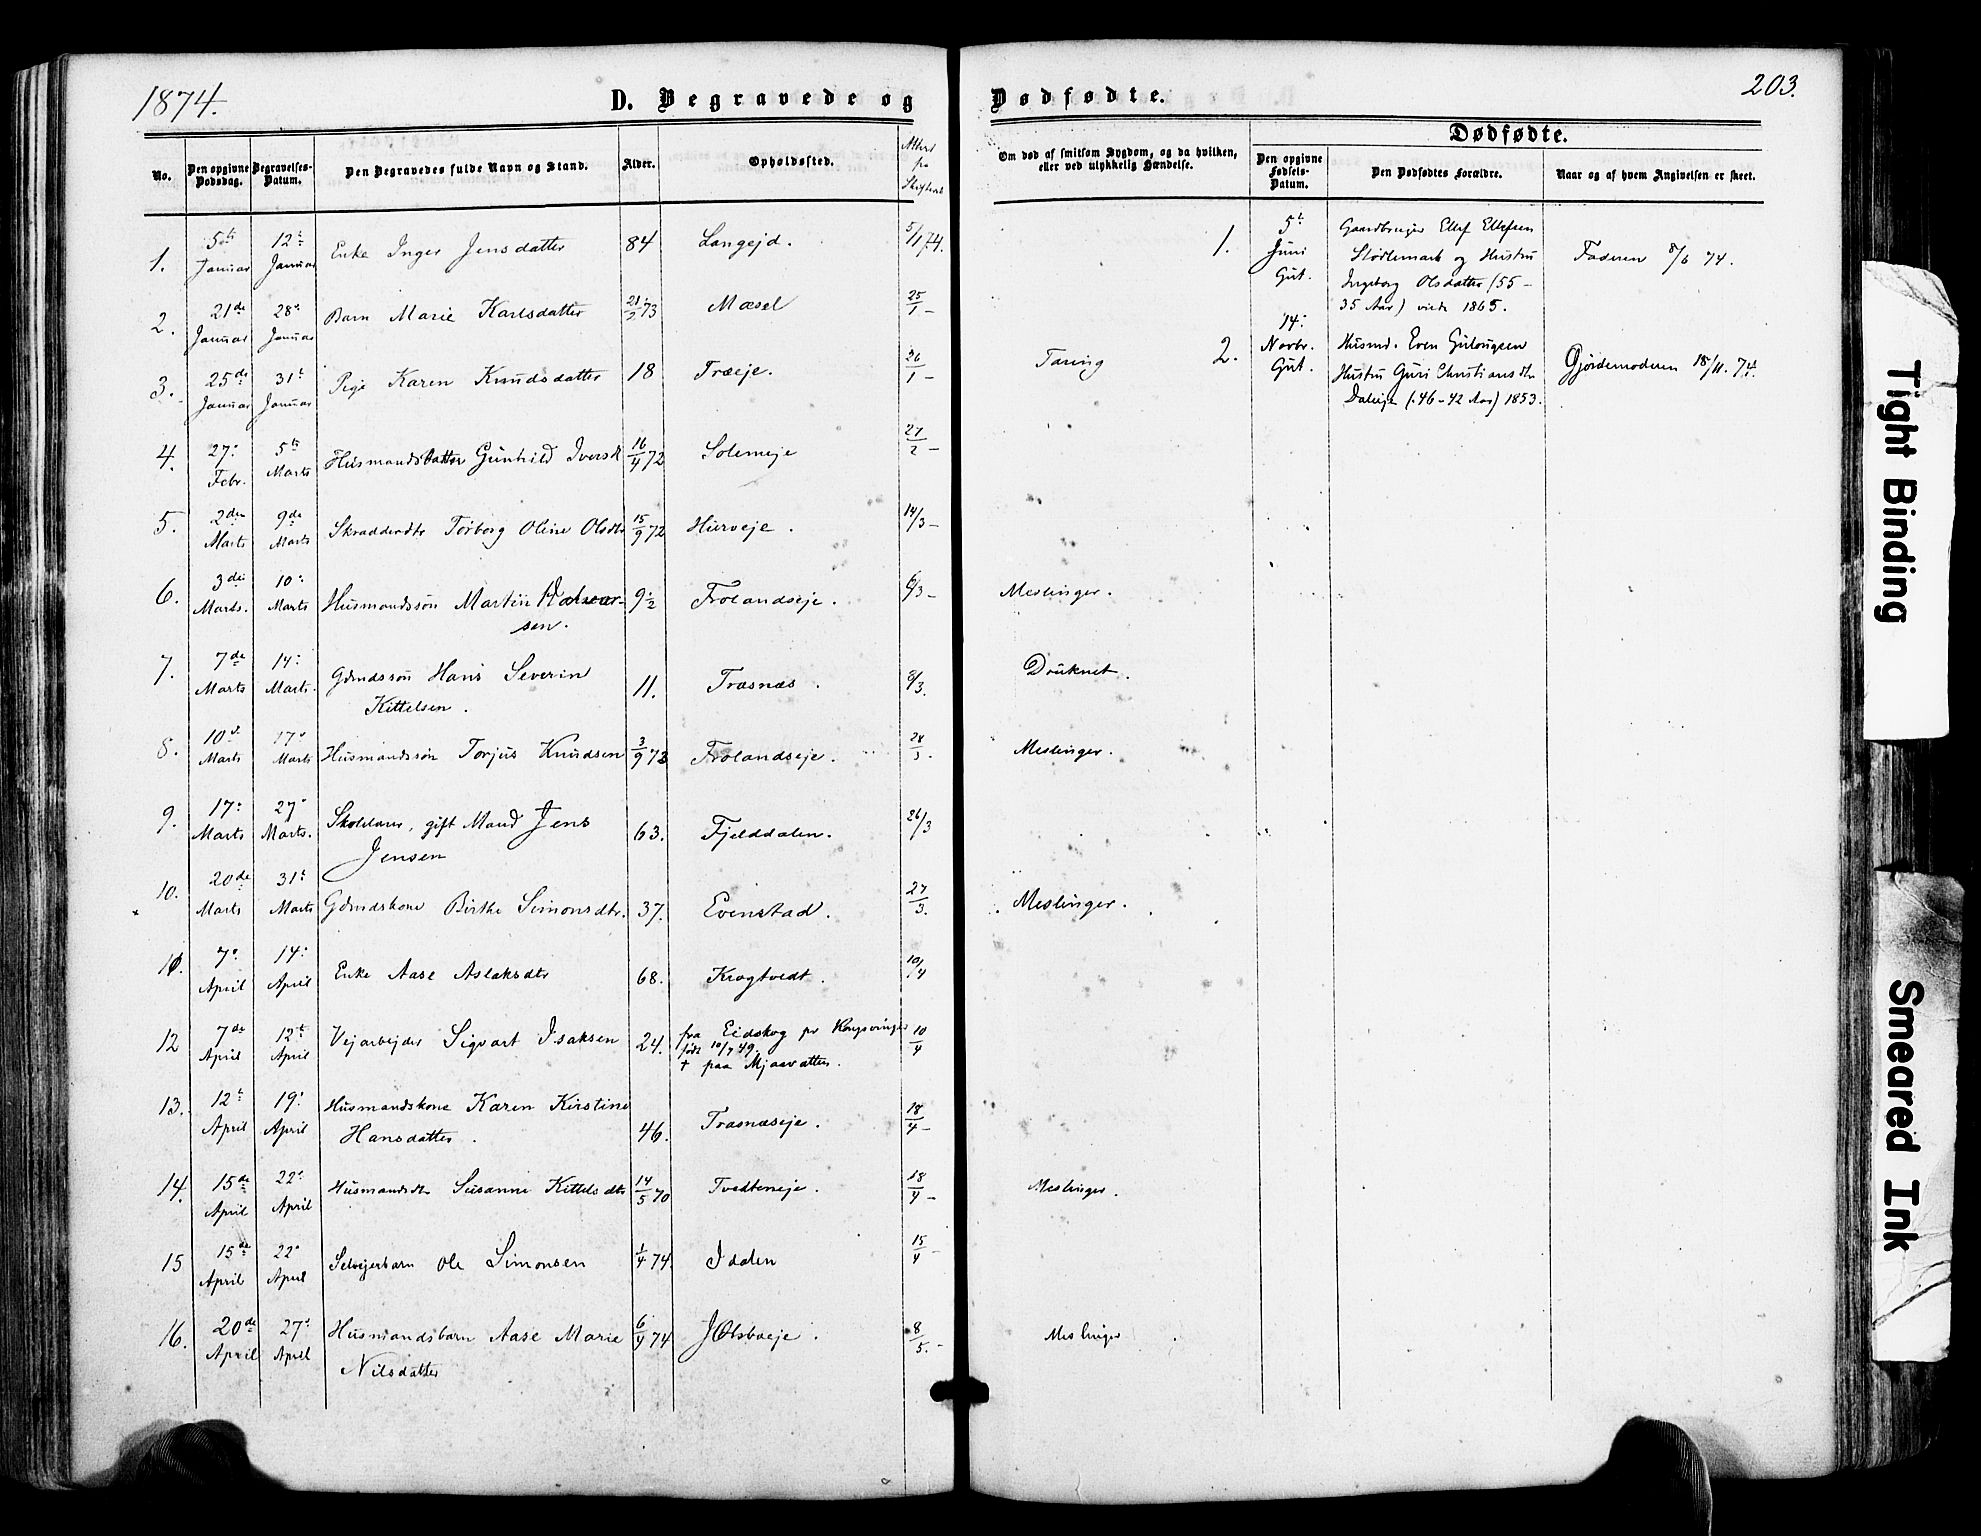 1874.
D. Begravede og
Dødfødte.
203.
No.
Den opgivne Dødsdag.
Begravelses-Datum.
Den Begravedes fulde Navn og Stand.
Alder.
Opholdssted.
Attest fra Skifteret
Om død af smitsom Sygdom, og da hvilken, eller ved ulykkelig Hændelse.
Dødfødte.
Den opgivne Fødsels-Datum.
Den Dødfødtes Forældre.
Naar og af hvem Angivelsen er skeet.
1. 5te Januar 12te Januar Enke Inger Jensdatter 84 Langejd. 5/1 74.
2. 21de Januar 28de Januar Barn Marie Karlsdatter 21/2 73 Mæsel 25/1 -
3. 25de Januar 31te Januar Pige Karen Knudsdatter 18 Træeje. 26/1 - Tæring
4. 27 Febr. 5te Marts Husmandsdatter Gunhild Iversdt 16/4 72 Solemeje 27/2 -
5. 2den Marts 9de Marts Skrædderdtr Torborg Oline Olsdtr 15/9 72 Hurveje. 14/3 -
6. 3die Marts. 10: Marts Husmandssøn Martin Halvor-
sen. 9 1/2 Frolandseje. 6/3 - Meslinger.
7. 7de Marts 14: Marts. Gdmdssøn Hans Severin
Kittelsen. 11. Træsnæs. 8/3. Druknet.
8. 10de Marts 17 Marts Husmandssøn Torjus Knudsen 3/9 73 Frolandseje. 28/3. Meslinger.
9. 17: Marts 27 Marts. Skolelærer, gift Mand Jens
Jensen 63. Fjelddalen. 26/3
10. 20de Marts 31t Marts Gdmdskone Birthe Simonsdtr. 37. Evenstad. 27/3. Meslinger.
11. 7de April 14: April Enke Aase Aslaksdtr 68. Krogtvedt. 10/4
12 7de April 12te April Vejarbejder Sigvart Isaksen 24. fra Eidskog pr Kongsvinger
født 10/7 49.
† paa Mjaavatten. 10/4
13. 12te April 19: April Husmandskone Karen Kirstine
Hansdatter. 46. Træsnæseje. 18/4 -
14. 15de April 22: April Husmandsdtr Susanne Kittelsdtr 14/5 70 Tvedteneje. 18/4 - Meslinger.
15 15de April 22 April Selvejerbarn Ole Simonsen 1/4 74. Idalen 15/4 -
16. 20de April 27: April Husmandsbarn Aase Marie
Nilsdatter 6/4 74 JØlsbueje. 8/5. - Meslinger
1. 5te Juni Gut. Gaardbruger Ellef Ellefsen
Stødlemark og Hustru
Ingeborg Olsdatter (55 -
35 Aar) viede 1865. Faderen 8/6 74.
2. 14: Novbr. Gut. Husmd. Even Gulougsen
Hustru Guri Christiansdtr
Daleje (46 - 42 Aar) 1853. Gjordemoderen 18/11. 74.
Tight Binding
Smeared Ink